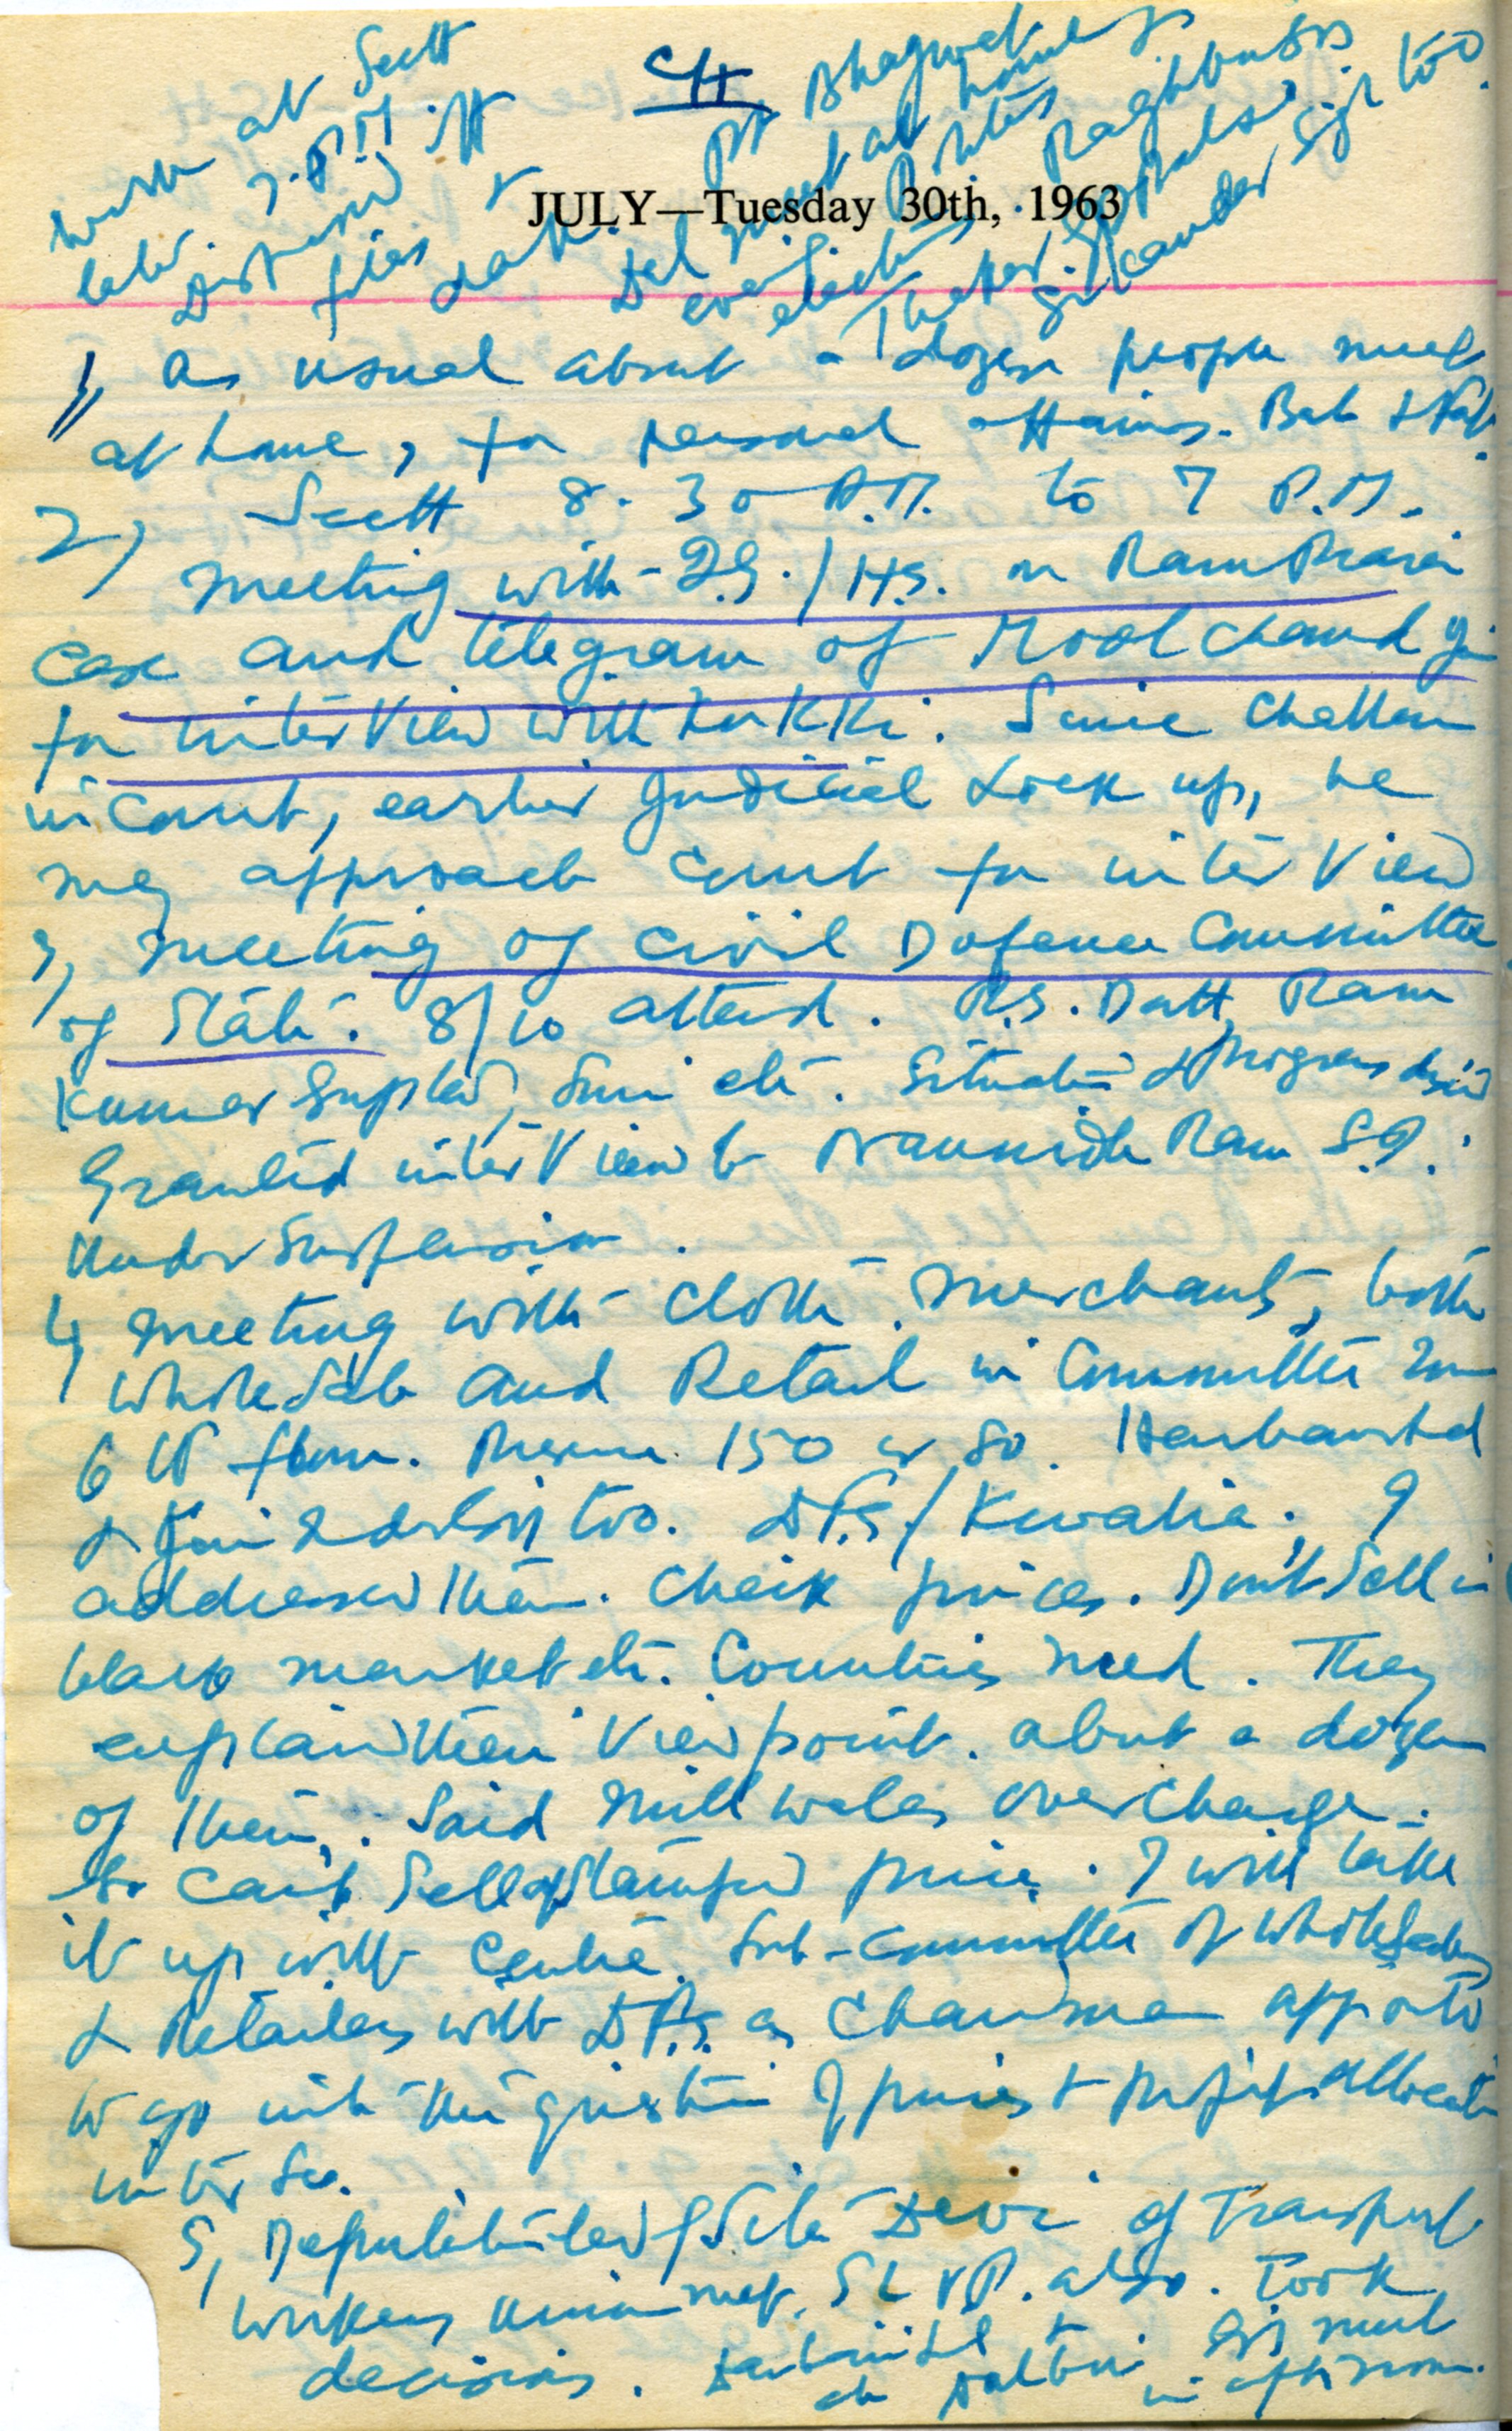 CH
work at Sectt
late. 7. P.M.
Disposed off
files &
dak.
Pt. Bhagwat
Dal meet at home
eve.
elections
Thaker
Sikander Singh too.
JULY—Tuesday 30th, 1963
1, As usual about a dozen people meet
at home, for personal affairs.
2) Sectt 8.30 A.M. to 7 P.M.
Meeting with I.G./H.S. on Ram Piara
case and telegram of Mool Chand
for interview with. Since Challan
in Court, earlier Judicial Lock up, he
may approach Court for interview
3, Meeting of Civil Defence Committee
of State. 8/10 attend. R.S. Datt, Ram
Kumar Gupta, etc. Situation & progress
Granted interview to Ram S.I.
Under Suspension.
4, Meeting with cloth merchants, both
Wholesale and Retail in Committee Room
6th floor. 150 or so.
& too. D.F.S./Kewalia. I
addressed them. Check prices. Don't sell in
black market etc. Countries need. They
explained their View point. about a dozen
of them. Said Mill walas overcharge.
So can't sell at stamped price. I will take
it up with Centre. Sub-Committee of Wholesalers
& Retailers with D.F.S. as Chairman appointed
to go into the question of prices & profit allocation
inter se.
5, Deputation led by Sita Devi of Transport
Workers Union met. also. Took
decisions. meet
in afternoon.